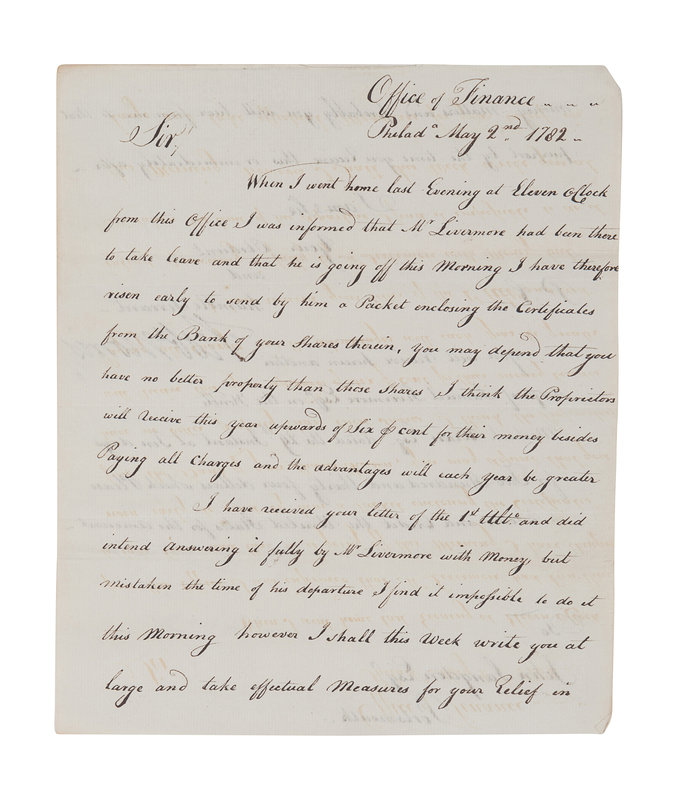 Office of Finance
Philad.a May 2.nd 1782
Sir,
When I went home last Evening at Eleven OClock
from this Office I was informed that Mr Livermore had been there
to take leave and that he is going off this Morning I have therefore
risen early to send by him a Packet enclosing the Certificates
from the Bank of your Shares therein, you may depend that you
have no better property than those Shares I think the Proprietors
will receive this year upwards of Six ⅌ cent for their money besides
Paying all Charges and the advantages will each year be greater
I have received your letter of the 1st Ulto. and did
intend answering it fully by Mr Livermore with Money, but
mistaken the time of his departure I find it impossible to do it
this Morning however I shall this Week write you at
large and take effectual Measures for your Relief in